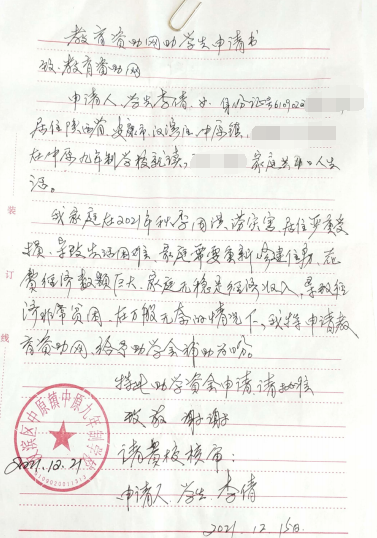 教育资助网助学生申请书
致:教育资助网
申请人,学生李倩,女,身份证号610902
居住陕西省,安康市,汉滨区,中原镇,
在中原九年制学校就读。家庭共 口人生
活。
我家庭在2021年秋季因洪涝灾害,居住严重受
损,导致生活困难,家庭需要重新修建住房,花
费经济数额巨大,家庭无稳定经济收入,导致经
济非常贫困,在万般无奈的情况下,我特申请教
育资助网,给予助学金补助为盼。
特此助学资金申请,请批准
致敬 谢谢
请贵校核审:
申请人:学生 李倩
2021.12.15日
2021.12.21
汉滨区中原镇中原九年制学校
装
订
线